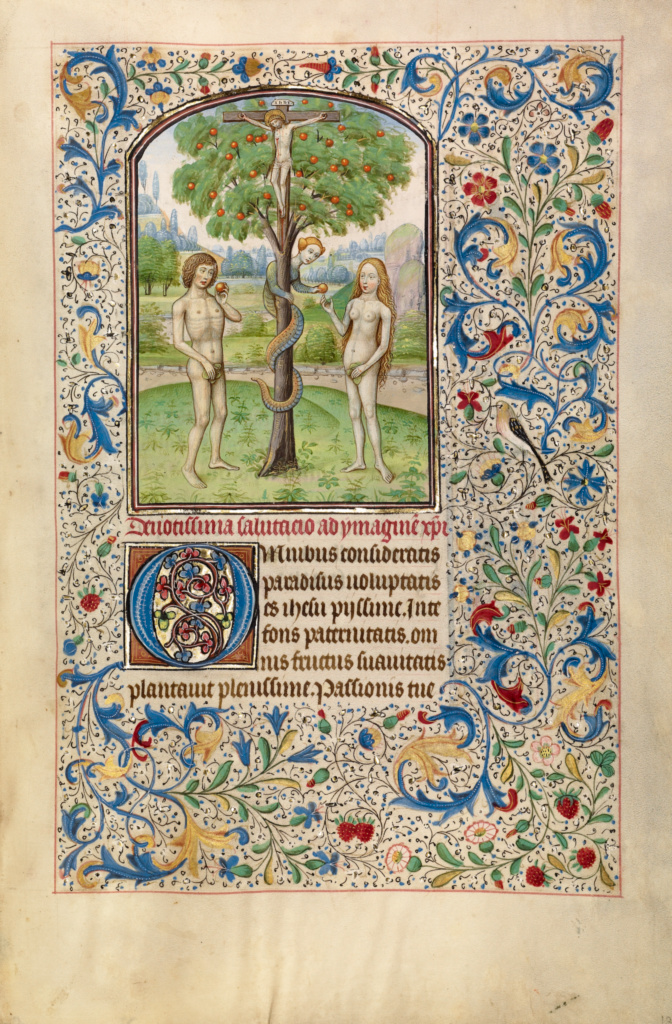 INRI
Deuotissima salutacio ad ymaginē xp̄i
Omnibus consideratis
paradisus uoluptatis
es ihesu pijssime. In te
fons paternitatis. om
nis fructus suauitatis
plantauit plenissime. Passionis tue